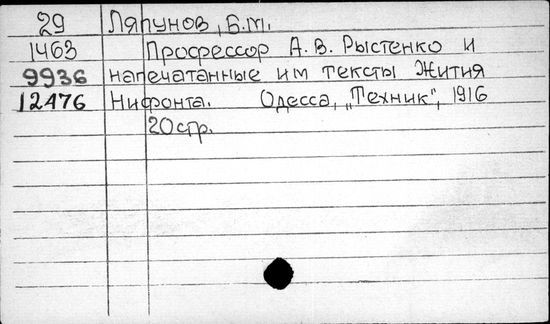 29 Ляпунов, Б.М.
1463 Профессор А.В. Рыстенко и
9936 напечатанные им тексты Жития
12476 Нифонта. Одесса, „Техник", 1916
20стр.